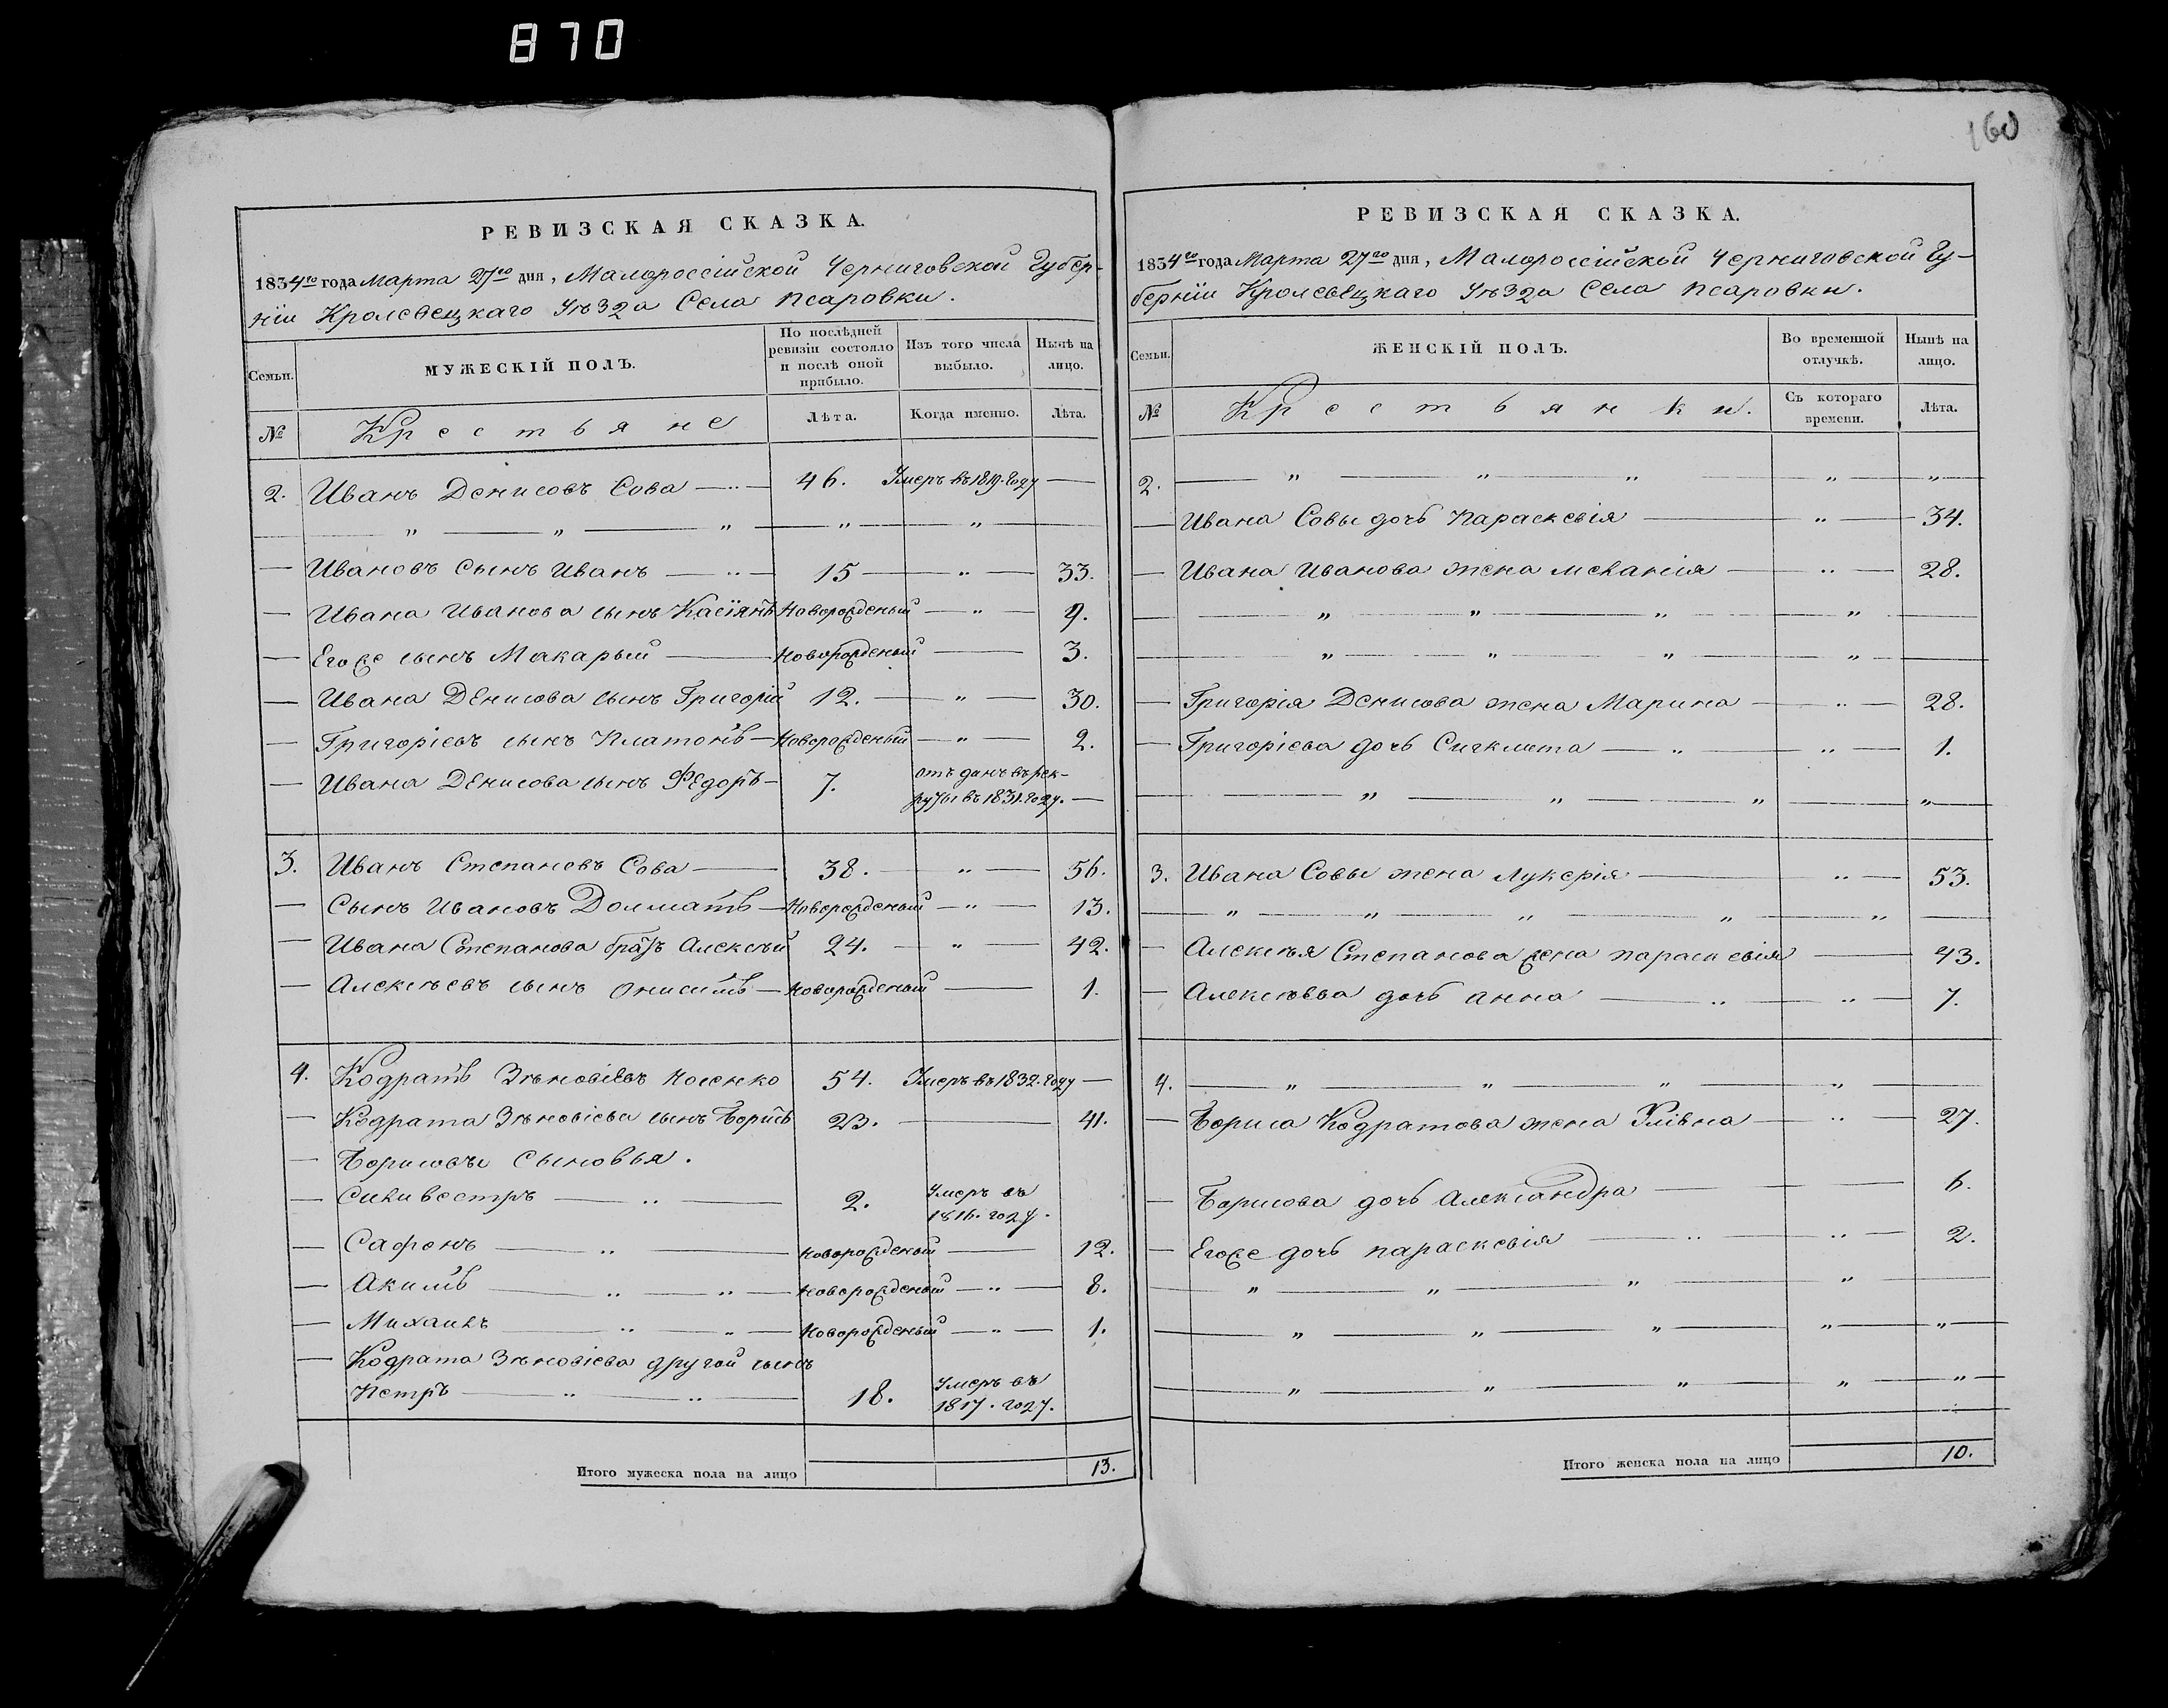 870
160
РЕВИЗСКАЯ СКАЗКА.
1834го года Марта 27го дня, Малороссійской Черниговской Губер-
ніи Кролевецкаго Уѣзда Села Псаровки.
Семьи. МУЖЕСКІЙ ПОЛЪ. По послѣдней ревизіи состояло и послѣ оной прибыло. Изъ того числа выбыло. Нынѣ на лицо.
№ Крестьяне Лѣта. Когда именно. Лѣта.
2. Иванъ Денисовъ Сова — 46. Умеръ въ 1819. году —
— „ — „ — „ — „ — „ —
— Ивановъ сынъ Иванъ — 15 — „ — 33.
— Ивана Иванова сынъ Касіянъ Новорожденый — „ — 9.
— Егоже сынъ Макарый — Новорожденый — 3.
— Ивана Денисова сынъ Григорій 12. — „ — 30.
— Григоріевъ сынъ Платонъ — Новорожденый — „ — 2.
— Ивана Денисова сынъ Федоръ — 7. отъданъ въ рек-
руты въ 1831. году. —
3. Иванъ Степановъ Сова — 38. — „ — 56.
— Сынъ Ивановъ Долматъ — Новорожденый — „ — 13.
— Ивана Степанова братъ Алексѣй 24. — „ — 42.
— Алексѣевъ сынъ Онисимъ — Новорожденый — 1.
4. Кодратъ Зѣновіевъ 54. Умеръ въ 1832. году —
— Кодрата Зѣновіева сынъ Борисъ 23. — 41.
— Борисовы сыновья.
— Силивестръ — „ — 2. Умеръ въ
1816. году.
— Сафонъ — „ — Новорожденый — 12.
— Акимъ — „ — „ — Новорожденый — „ — 8.
— Михаилъ — „ — „ — Новорожденый — „ — 1.
— Кодрата Зѣновіева другой сынъ
Петръ — „ — „ — 18. Умеръ въ
1817. году.
Итого мужеска пола на лицо 13.
РЕВИЗСКАЯ СКАЗКА.
1834го года Марта 27го дня, Малороссійской Черниговской Гу-
берніи Кролевецкаго Уѣзда Села Псаровки.
Семьи. ЖЕНСКІЙ ПОЛЪ. Во временной отлучкѣ. Нынѣ на лицо.
№ Крестьянки. Съ котораго времени. Лѣта.
2. — „ — „ — „ — „ — „ —
— Ивана Совы дочь Параскевія — „ — 34.
— Ивана Иванова жена Меланія — „ — 28.
— „ — „ — „ — „ —
— „ — „ — „ — „ —
— Григорія Денисова жена Марина — „ — 28.
— Григоріева дочь — „ — „ — 1.
— „ — „ — „ — „ —
3. Ивана Совы жена Лукерія — „ — 53.
— „ — „ — „ — „ — „ —
— Алексѣя Степанова жена Параскевія — 43.
— Алексѣева дочь Анна — „ — „ — 7.
4. — „ — „ — „ — „ —
— Бориса Кодратова жена — „ — 27.
— Борисова дочь Александра — 6.
— Егоже дочь Параскевія — „ — „ — 2.
— „ — „ — „ — „ —
— „ — „ — „ — „ — „ —
— „ — „ — „ — „ — „ —
Итого женска пола на лицо 10.